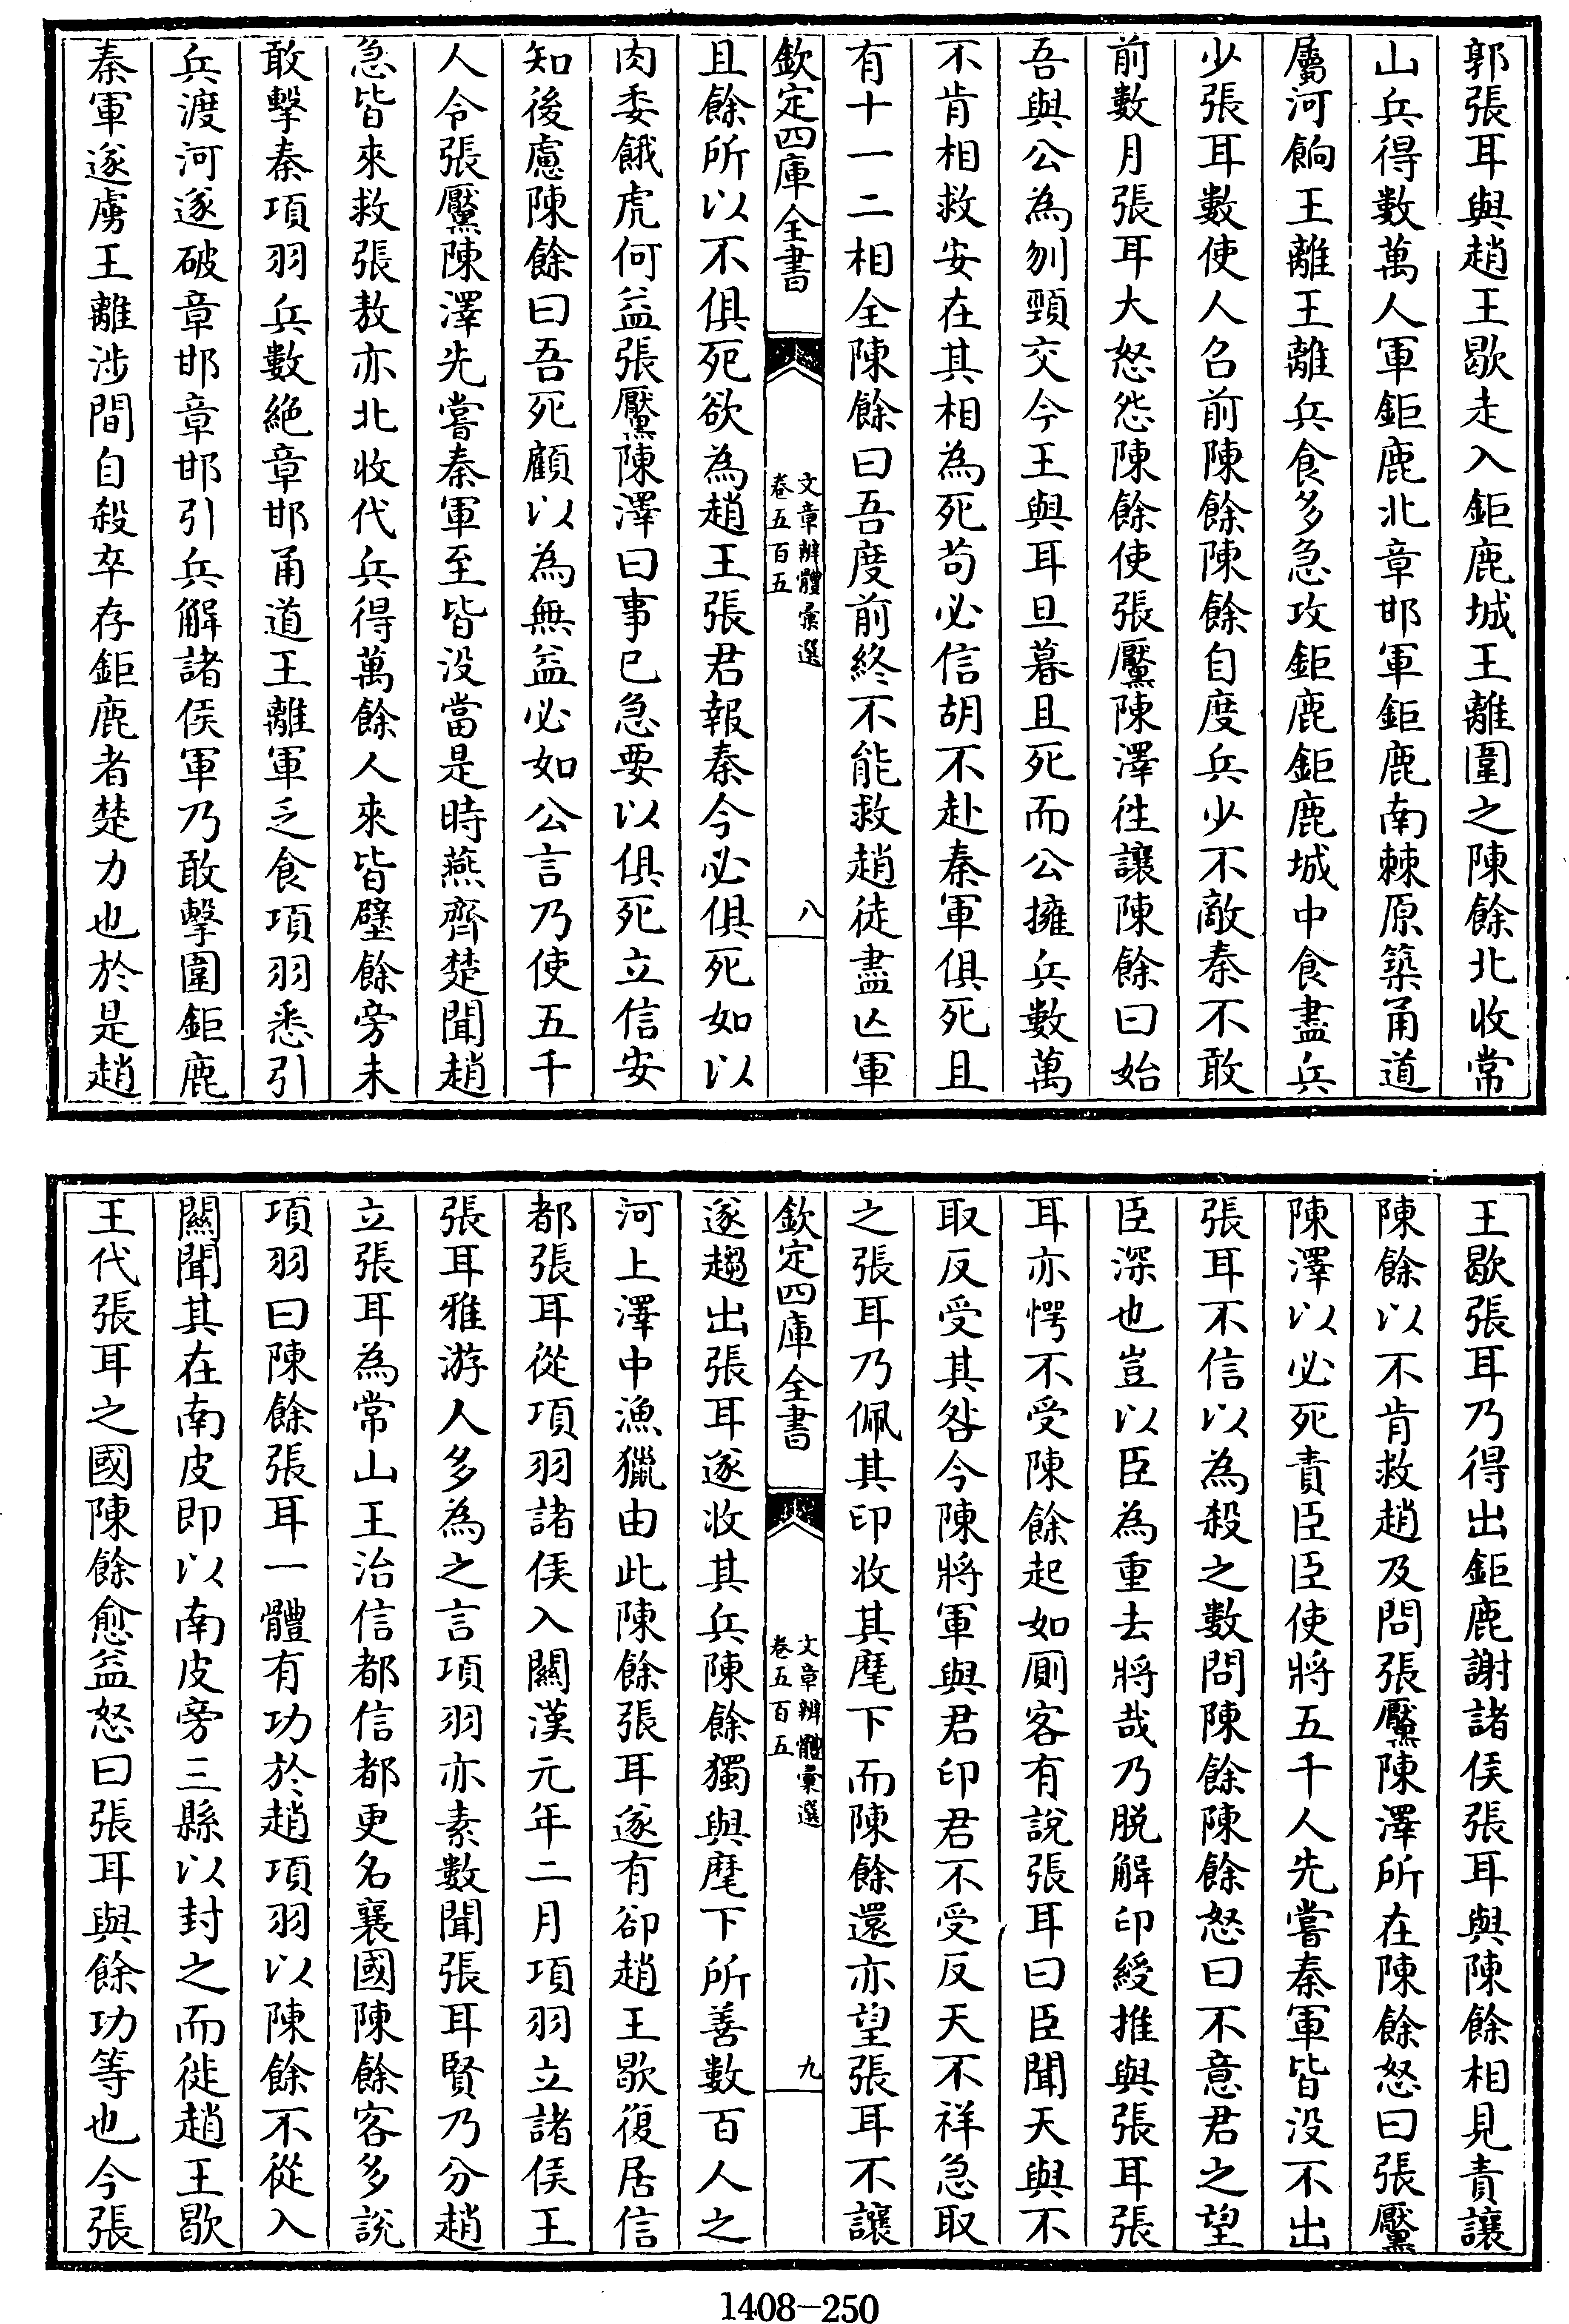 郭張耳與趙王歇走入鉅鹿城王離圍之陳餘北收常
山兵得數萬人軍鉅鹿北章邯軍鉅鹿南棘原築甬道
屬河餉王離王離兵食多急攻鉅鹿鉅鹿城中食盡兵
少張耳數使人召前陳餘陳餘自度兵少不敵秦不敢
前數月張耳大怒怨陳餘使張黶陳澤往讓陳餘曰始
吾與公為刎頸交今王與耳旦暮且死而公擁兵數萬
不肯相救安在其相為死苟必信胡不赴秦軍俱死且
有十一二相全陳餘曰吾度前終不能救趙徒盡亡軍
欽定四庫全書
文章辨體彙選
卷五百五
八
且餘所以不俱死欲為趙王張君報秦今必俱死如以
肉委餓虎何益張黶陳澤曰事已急要以俱死立信安
知後慮陳餘曰吾死顧以為無益必如公言乃使五千
人令張黶陳澤先嘗秦軍至皆没當是時燕齊楚聞趙
急皆來救張敖亦北收代兵得萬餘人來皆壁餘旁未
敢擊秦項羽兵數絶章邯甬道王離軍乏食項羽悉引
兵渡河遂破章邯章邯引兵解諸侯軍乃敢擊圍鉅鹿
秦軍遂虜王離涉間自殺卒存鉅鹿者楚力也於是趙
王歇張耳乃得出鉅鹿謝諸侯張耳與陳餘相見責讓
陳餘以不肯救趙及問張黶陳澤所在陳餘怒曰張黶
陳澤以必死責臣臣使將五千人先嘗秦軍皆没不出
張耳不信以為殺之數問陳餘陳餘怒曰不意君之望
臣深也豈以臣為重去將哉乃脱解印綬推與張耳張
耳亦愕不受陳餘起如厠客有說張耳曰臣聞天與不
取反受其咎今陳將軍與君印君不受反天不祥急取
之張耳乃佩其印收其麾下而陳餘還亦望張耳不讓
欽定四庫全書
文章辨體彙選
卷五百五
九
遂趨出張耳遂收其兵陳餘獨與麾下所善數百人之
河上澤中漁獵由此陳餘張耳遂有卻趙王歇復居信
都張耳從項羽諸侯入關漢元年二月項羽立諸侯王
張耳雅游人多為之言項羽亦素數聞張耳賢乃分趙
立張耳為常山王治信都信都更名襄國陳餘客多說
項羽曰陳餘張耳一體有功於趙項羽以陳餘不從入
關聞其在南皮即以南皮旁三縣以封之而徙趙王歇
王代張耳之國陳餘愈益怒曰張耳與餘功等也今張
1408-250